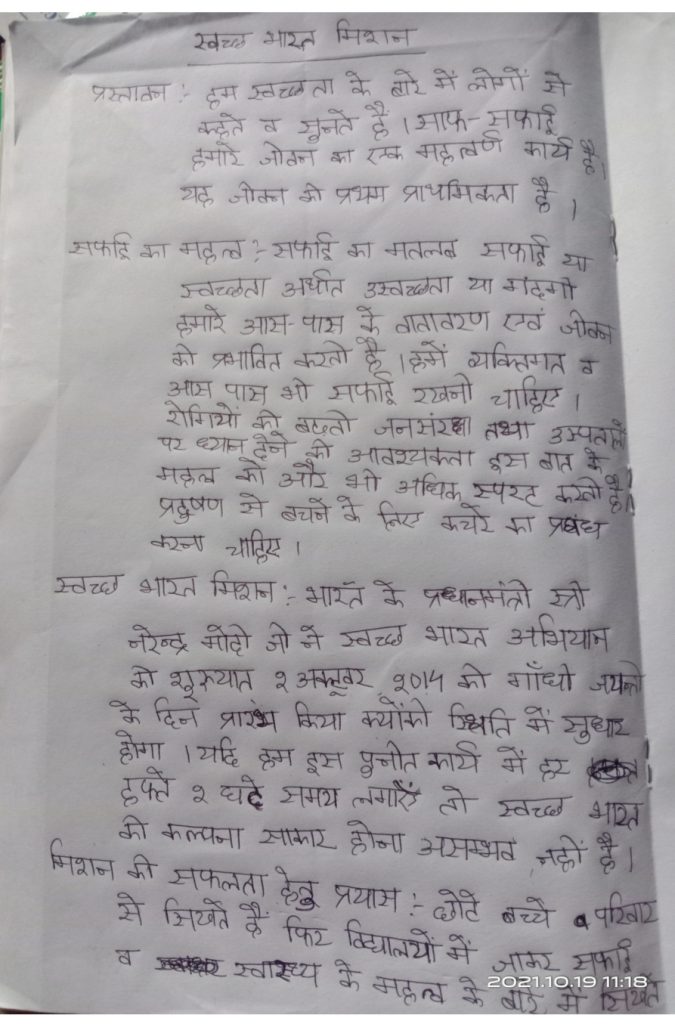 स्वच्छ भारत मिशन
प्रस्तावन :- हम स्वच्छता के बारे में लोगों से
कहते व सुनते है । साफ-सफाई
हमारे जीवन का एक महत्वर्ण कार्य है।
यह जीवन की प्रथम प्राथमिकता है ।
सफाई का महत्व :- सफाई का मतलब सफाई या
स्वच्छता अर्थात अस्वच्छता या गंदगी
हमारे आस-पास के वातावरण एवं जीवन
को प्रभावित करती है । हमें व्यक्तिगत व
आस पास भी सफाई रखनी चाहिए ।
रोगियों की बढ़ती जनसंख्या तथा अस्पतालों
पर ध्यान देने की आवश्यकता इस बात के
महत्व को और भी अधिक स्पस्ट करती है।
प्रदुषण से बचने के लिए कचरे का प्रबंध
करना चाहिए ।
स्वच्छ भारत मिशन :- भारत के प्रधानमंत्री स्त्री
नरेन्द्र मोदी जी ने स्वच्छ भारत अभियान
की शुरुयात २ अक्टूबर २०14 को गाँधी जयन्ती
के दिन प्रारंभ किया क्योंकी स्थिति में सुधार
होगा । यदि हम इस पुनीत कार्य में हर
हफ्ते २ घंटे समय लगाएँ तो स्वच्छ भारत
की कल्पना साकार होना असम्भव नहीं है ।
मिशन की सफलता हेतु प्रयास :- छोटे बच्चे परिवार
से सिखते है फिर विद्यालयों में जाकर सफाई
व स्वास्थ्य के महत्व के बारे में सिखते
2021.10.19 11:18